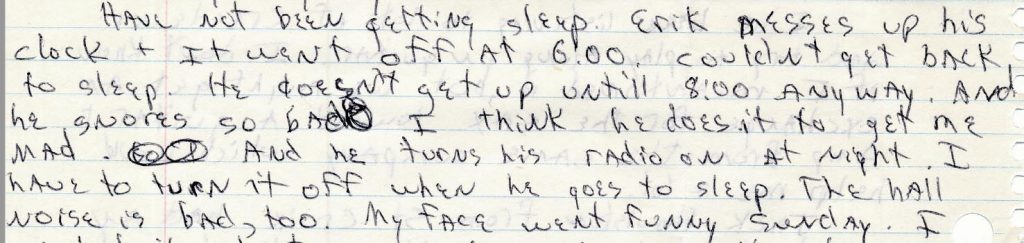 Have not been getting sleep. Erik messes up his
clock + It went off At 6:00. couldn't get back
to sleep. He doesn't get up untill 8:00 Anyway. And
he snores so bad I think he does it to get me
mad. And he turns his radio on at night. I
have to turn it off when he goes to sleep. The hall
noise is bad, too. My face went funny Sunday. I